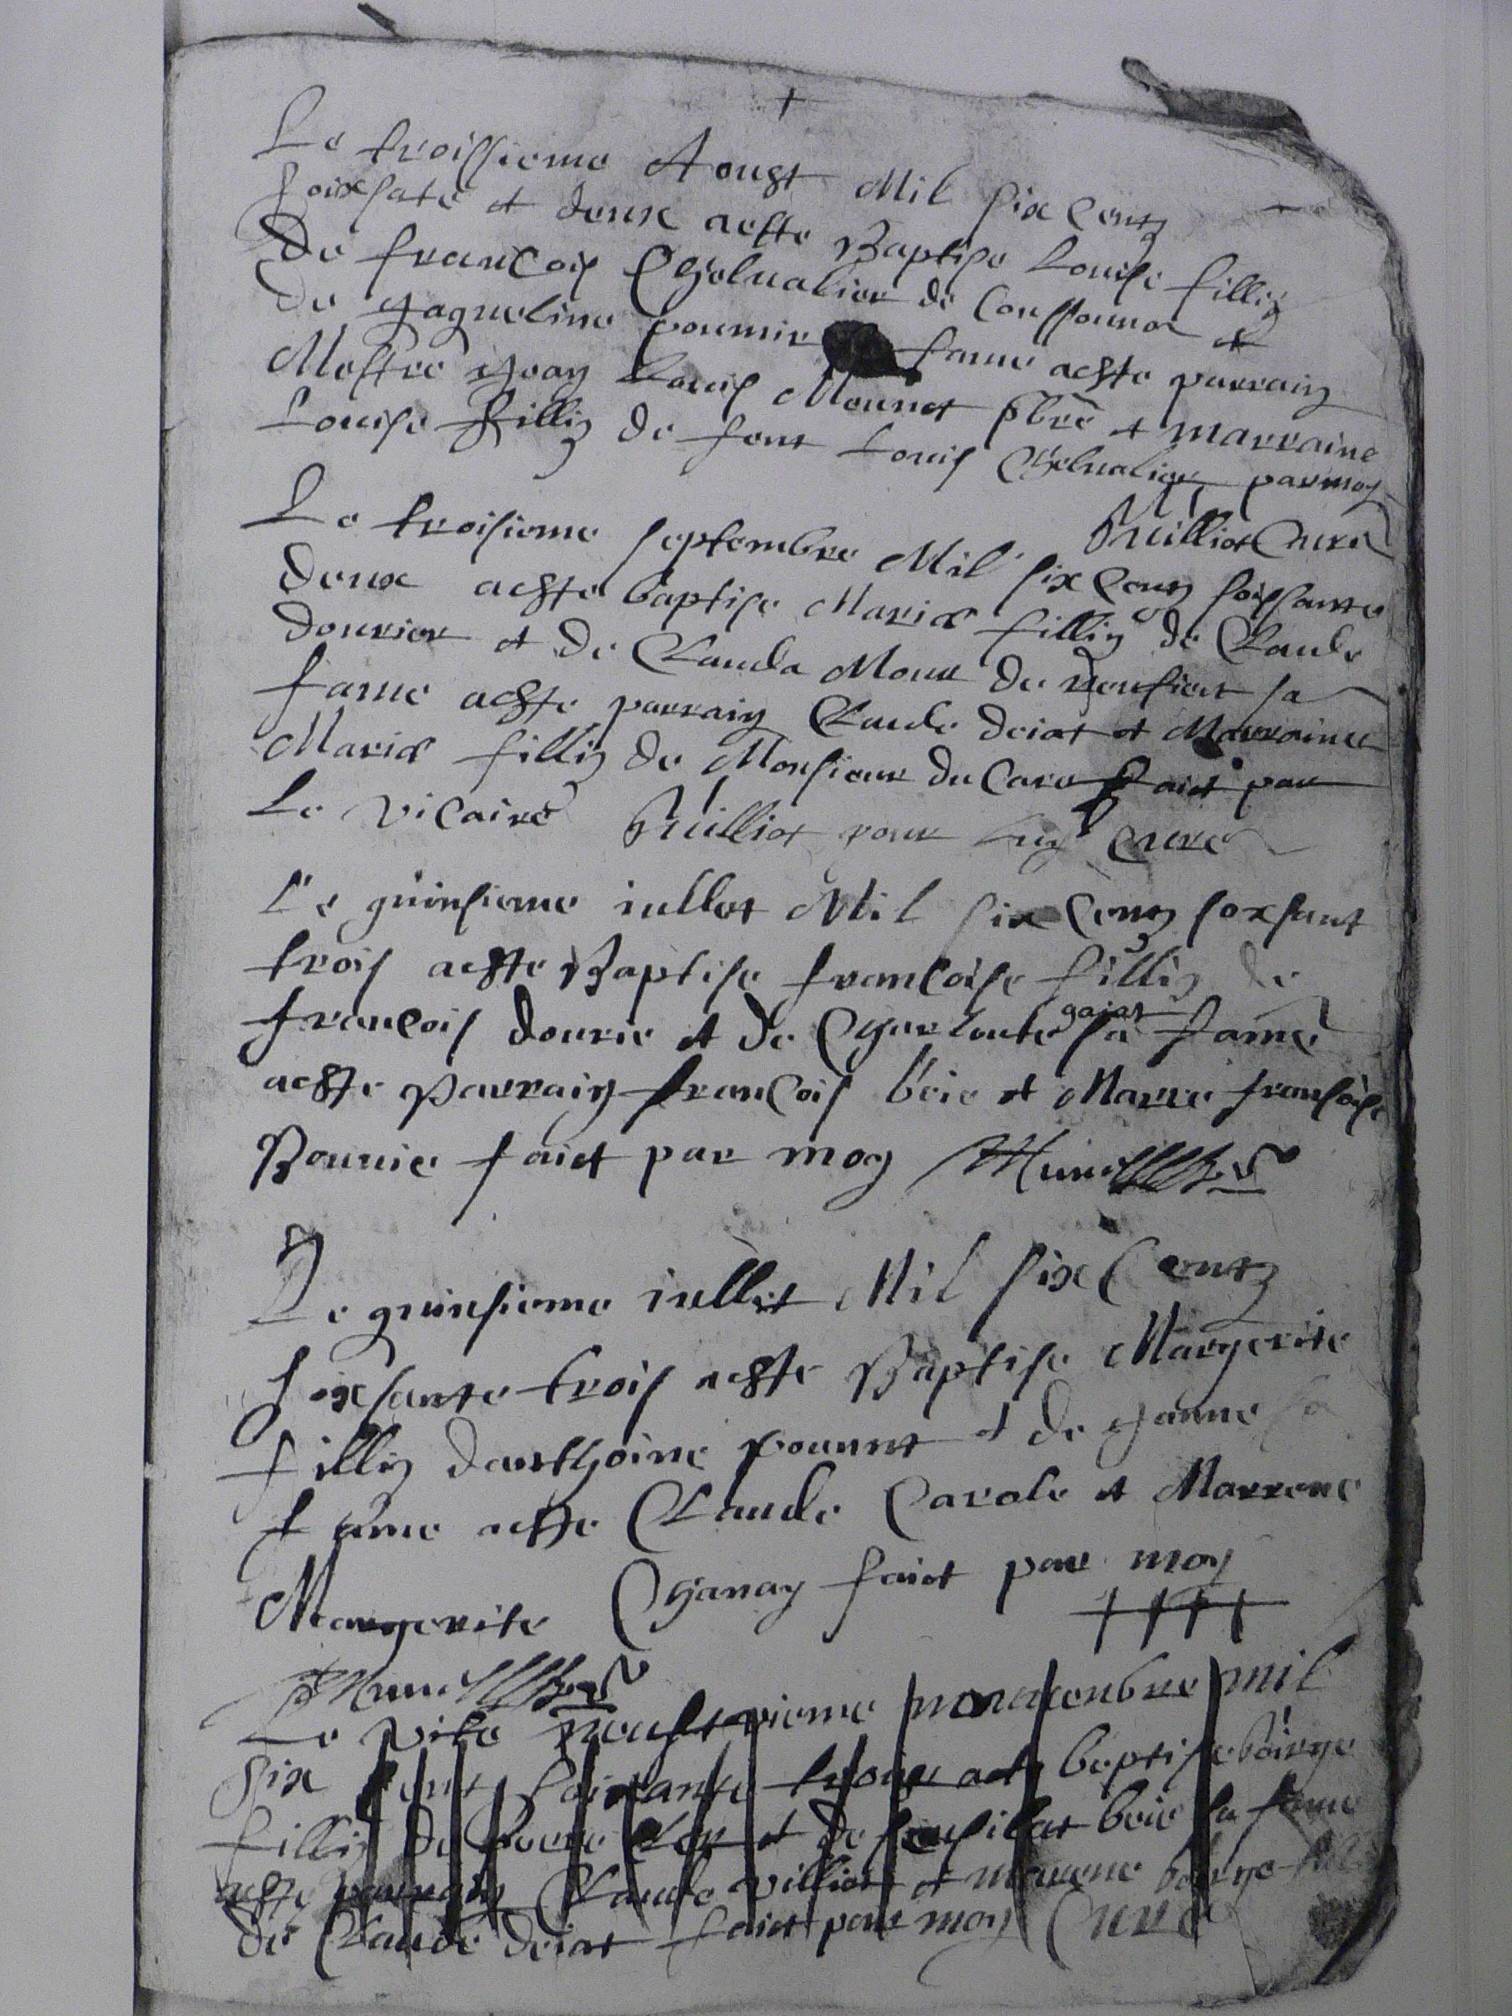 Le troissieme Aougt Mil six Centz
soixsate et deux aeste Baptise Louise filliz
De francois Chelualier de Coussonnor et
De Jaqueline poumir fame aeste parrain
Mestre Jean Louis Monnet pbre et marraine
Louise filliz de feut Louis Chelualier par moy
Puilliot Cure
Le troisieme septembre Mil six Centz soissante
deux aeste baptise Marie filliz de Claude
dourier et De Clauda Mour de sa
fame aeste parrain Claude deiat et Marraine
Marie filliz de Monsieur du Care faict par
Le vicaire Puilliot pour luy Cure
Le quinsieme iullet Mil six Centz soxsant
trois aeste Baptise francoise filliz de
francois dourie et de Charloute gaiat sa fame
aeste Parrain francois beie et Marre fransoise
Bouuie faict par moy
Le quinsieme iullet Mil six Centz
soixsante trois aeste Baptise Margerite
filliz danthoine pounnt et de Janne sa
fame aeste Claude Carole et Marrene
Margerite Chanay faict par moy
Le vite neufvieme nonuenbre mil
six cent soixante trois aete baptise
filliz de et de beie sa fame
aeste parrain Claude villiot et marene
de Claude deiat faict par moy Cure